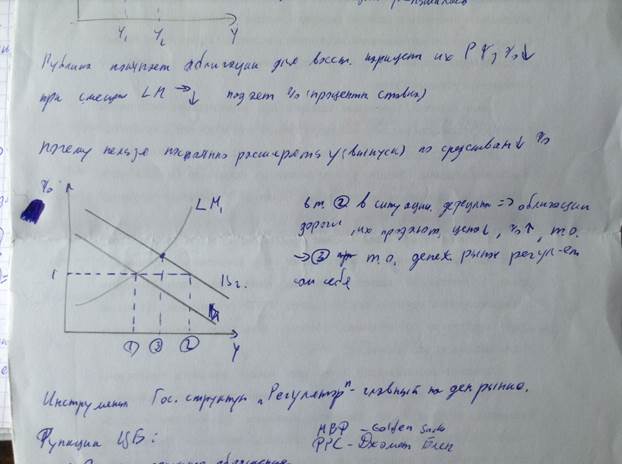 Y₁ Y₂ Y
Публика покупает облигации для восст. паритет их P↑, %↓
при смещен LM →↓ падает % (процентн ставка)
почему нельзя постоянно расширять Y (выпуск) по средствам ↓ %
%
LM₁
IS₂
1 3 2 Y
в т. 2 в ситуации дефицита => облигации
дороги, их продают, цена ↓, %↑, т.о.
→ 3 т.о. денеж. рынок регул-ет
сам себя
Инструменты Гос. структуры "Регулятор" - главный на ден рынке.
Функции ЦБ:
МВФ - Golden
ФРС - Джэнет
обращение